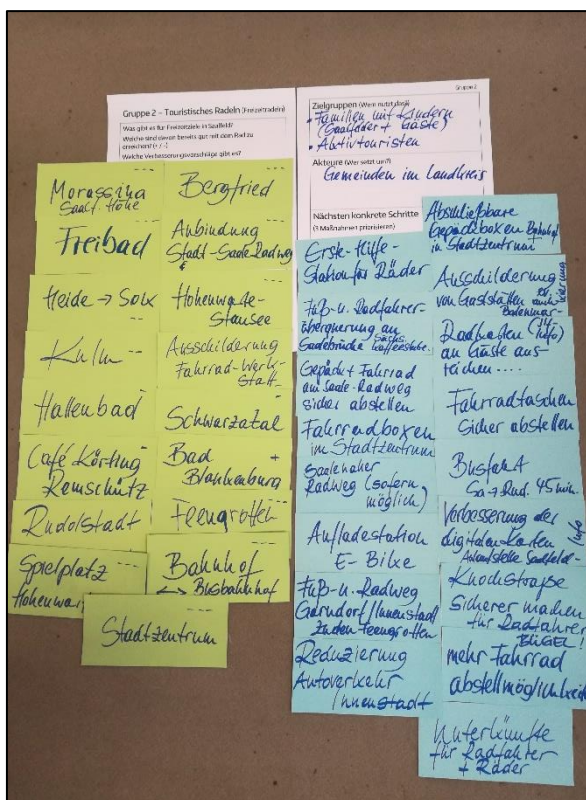 Gruppe 2 – Touristisches Radeln (Freizeitradeln)
Was gibt es für Freizeitziele in Saalfeld?
Welche sind davon bereits gut mit dem Rad zu
erreichen? (+ / -)
Welche Verbesserungsvorschläge gibt es?
Gruppe 2
Zielgruppen (Wem nutzt das?)
• Familien mit Kindern
(Saalfelder + Gäste)
• Aktivtouristen
Akteure (Wer setzt um?)
Gemeinden im Landkreis
Nächsten konkrete Schritte
(3 Maßnahmen priorisieren)
Morassina
Saalf. Höhe
Freibad
Heide →
Kulm --
Hallenbad
Café Körting
Remschütz
Rudolstadt
Spielplatz
Hohenwar
Stadtzentrum
Bergfried
Anbindung
Stadt-Saale-Radweg
Hohenwarte-
Stausee
Ausschilderung
Fahrrad-Werk-
statt
Schwarzatal
Bad +
Blankenburga
Feengrotten
Bahnhof
↔ Busbahnhof
Erste-Hilfe-
Station für Räder
Fuß- u. Radfahrer-
überquerung an
Saalebrücke
Gepäck + Fahrrad
am Saale-Radweg
sicher abstellen
Fahrradboxen
im Stadtzentrum
Saalenaher
Radweg (sofern
möglich)
Aufladestation
E-Bike
Fuß- u. Radweg
Garndorf/Innenstadt
zu den Feengrotten
Reduzierung
Autoverkehr
Innenstadt
Abschließbare
Gepäckboxen Bahnhof
in Stadtzentrum
Ausschilderung
von Gaststätten
Radkarten (Info)
an Gäste aus-
reichen ....
Fahrradtaschen
sicher abstellen
Busfahrt
Sa → Rud. 45 min.
Verbesserung der
digitalen Karten
Knochstraße
sicherer machen
für Radfahrer
BÜGEL!
mehr Fahrrad
abstellmöglichkeit
Unterkünfte
für Radfahrer
+ Räder